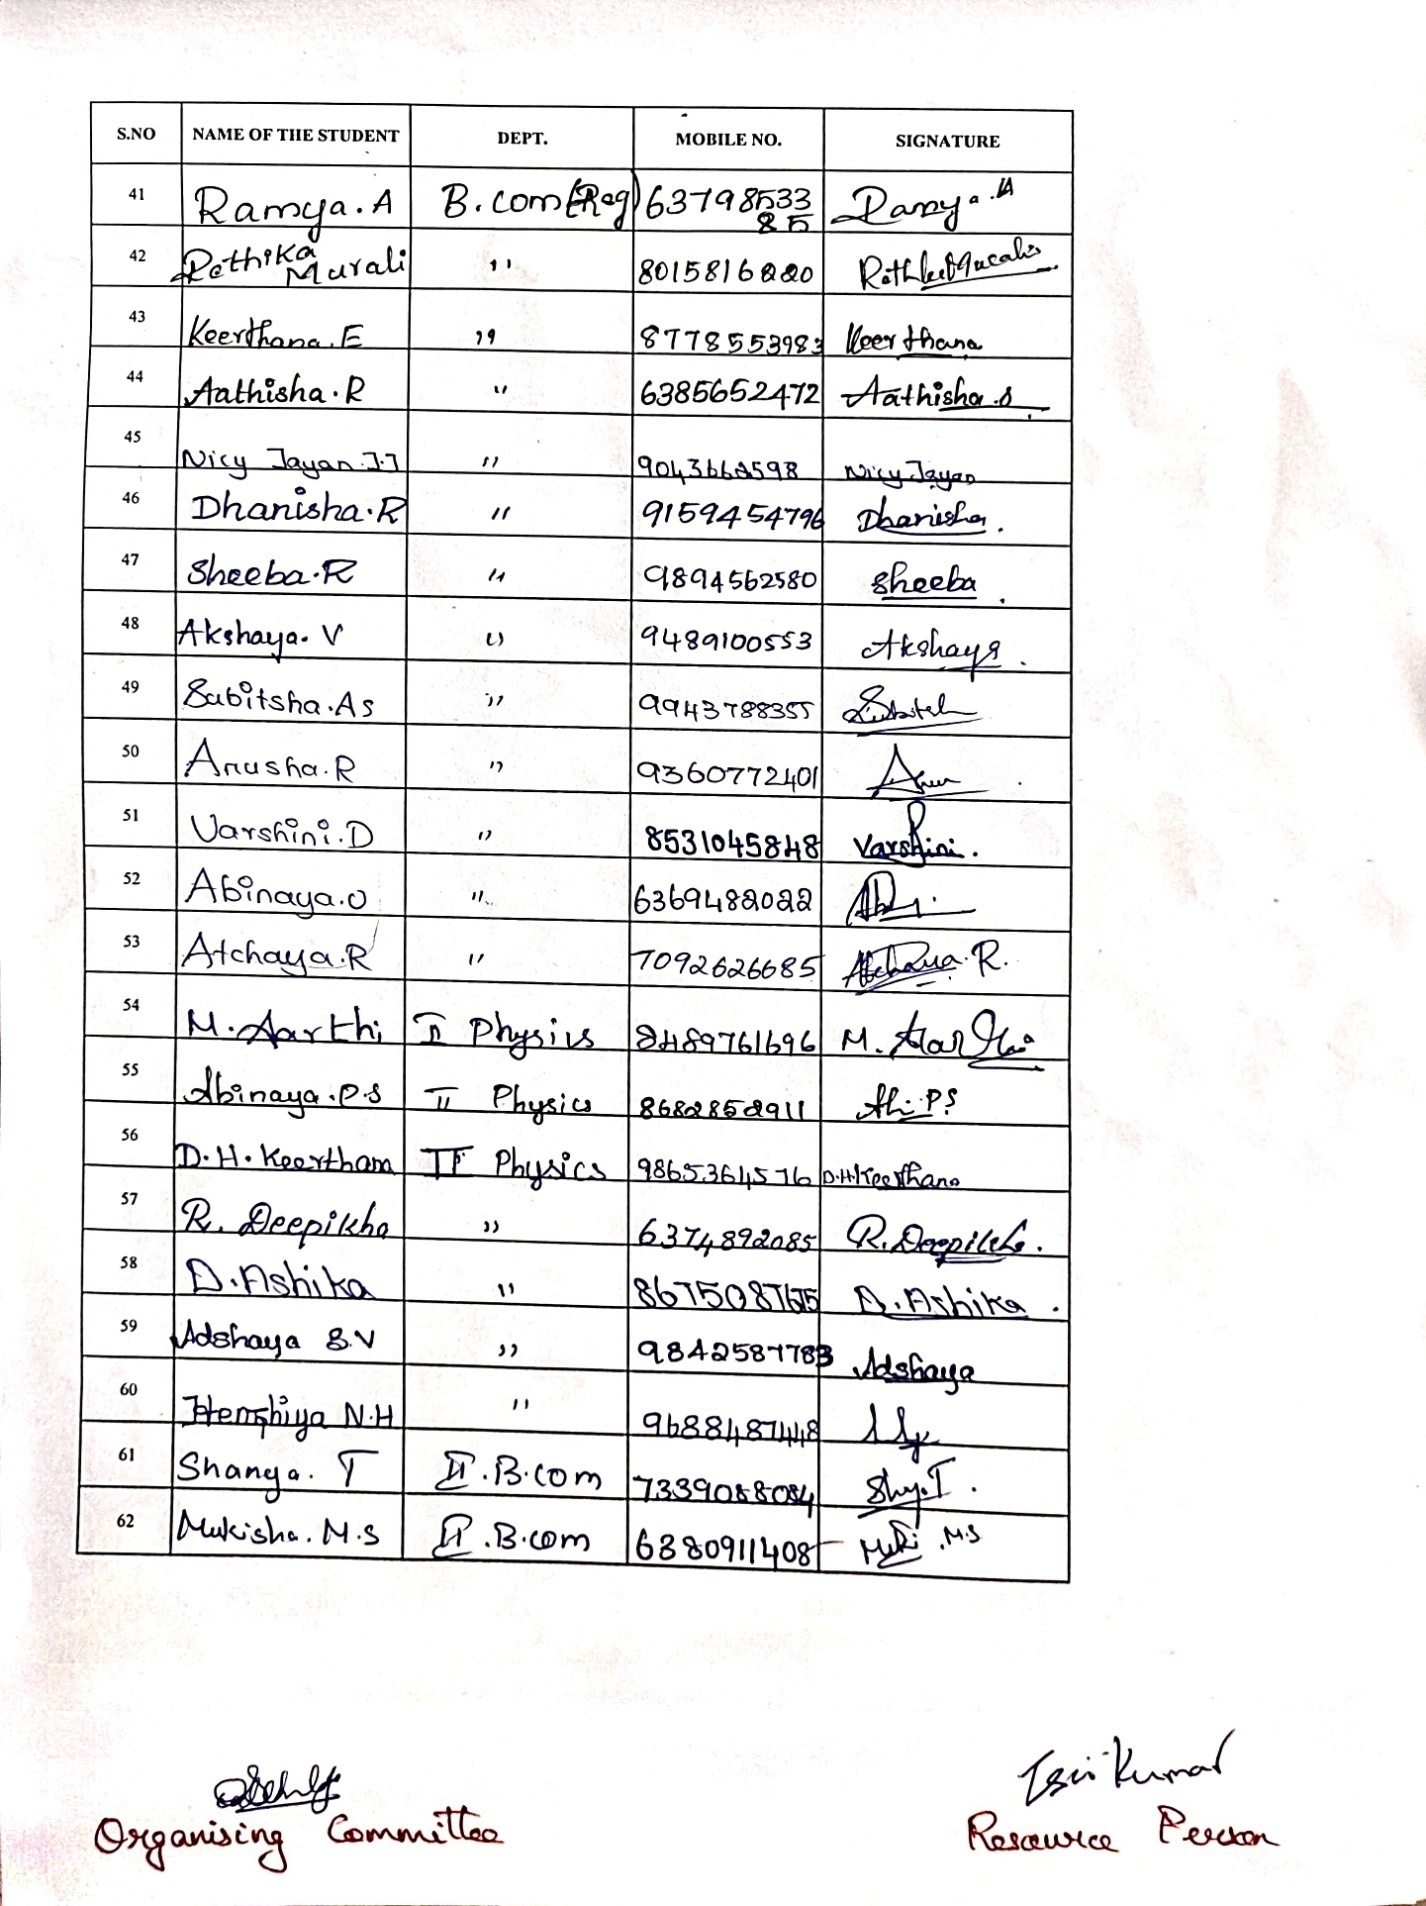 S.NO NAME OF THE STUDENT DEPT. MOBILE NO. SIGNATURE
41 Ramya. A B.com (Reg) 63798533 Ramya. A
85
42 Rethika Murali " 8015816220
43 Keerthana. E " 8778553983 Keerthana
44 Aathisha. R " 6385652472 Aathisha
45 Nicy Jayan. J.J " 9043662598 Nicy Jayan
46 Dhanisha. R " 9159454796 Dhanisha.
47 Sheeba. R " 9894562580 Sheeba
48 Akshaya. V " 9489100553 Akshaya
49 Subitsha. As " 9943788355
50 Anusha. R " 9360772401
51 Varshini. D " 8531045848 Varshini.
52 Abinaya. O " 6369482022
53 Atchaya. R " 7092626685 Atchaya. R.
54 M. Aarthi II Physics 8489761696 M. Aarthi
55 Abinaya. P.S II Physics 8682852911 Abi. P.S
56 D. H. Keerthana II Physics 9865364576 D.H. Keerthana
57 R. Deepikha " 6374892085 R. Deepikha.
58 D. Ashika " 8675087675 D. Ashika.
59 Adshaya S.V " 9842587783 Adshaya
60 Hemshiya N.H " 9688487448
61 Shanya. T II. B.com 7339088084 Shy. T.
62 Mukisha. M.S II. B.com 6380911408 Muki. M.S
Kumar
Organising Committee Resource Person